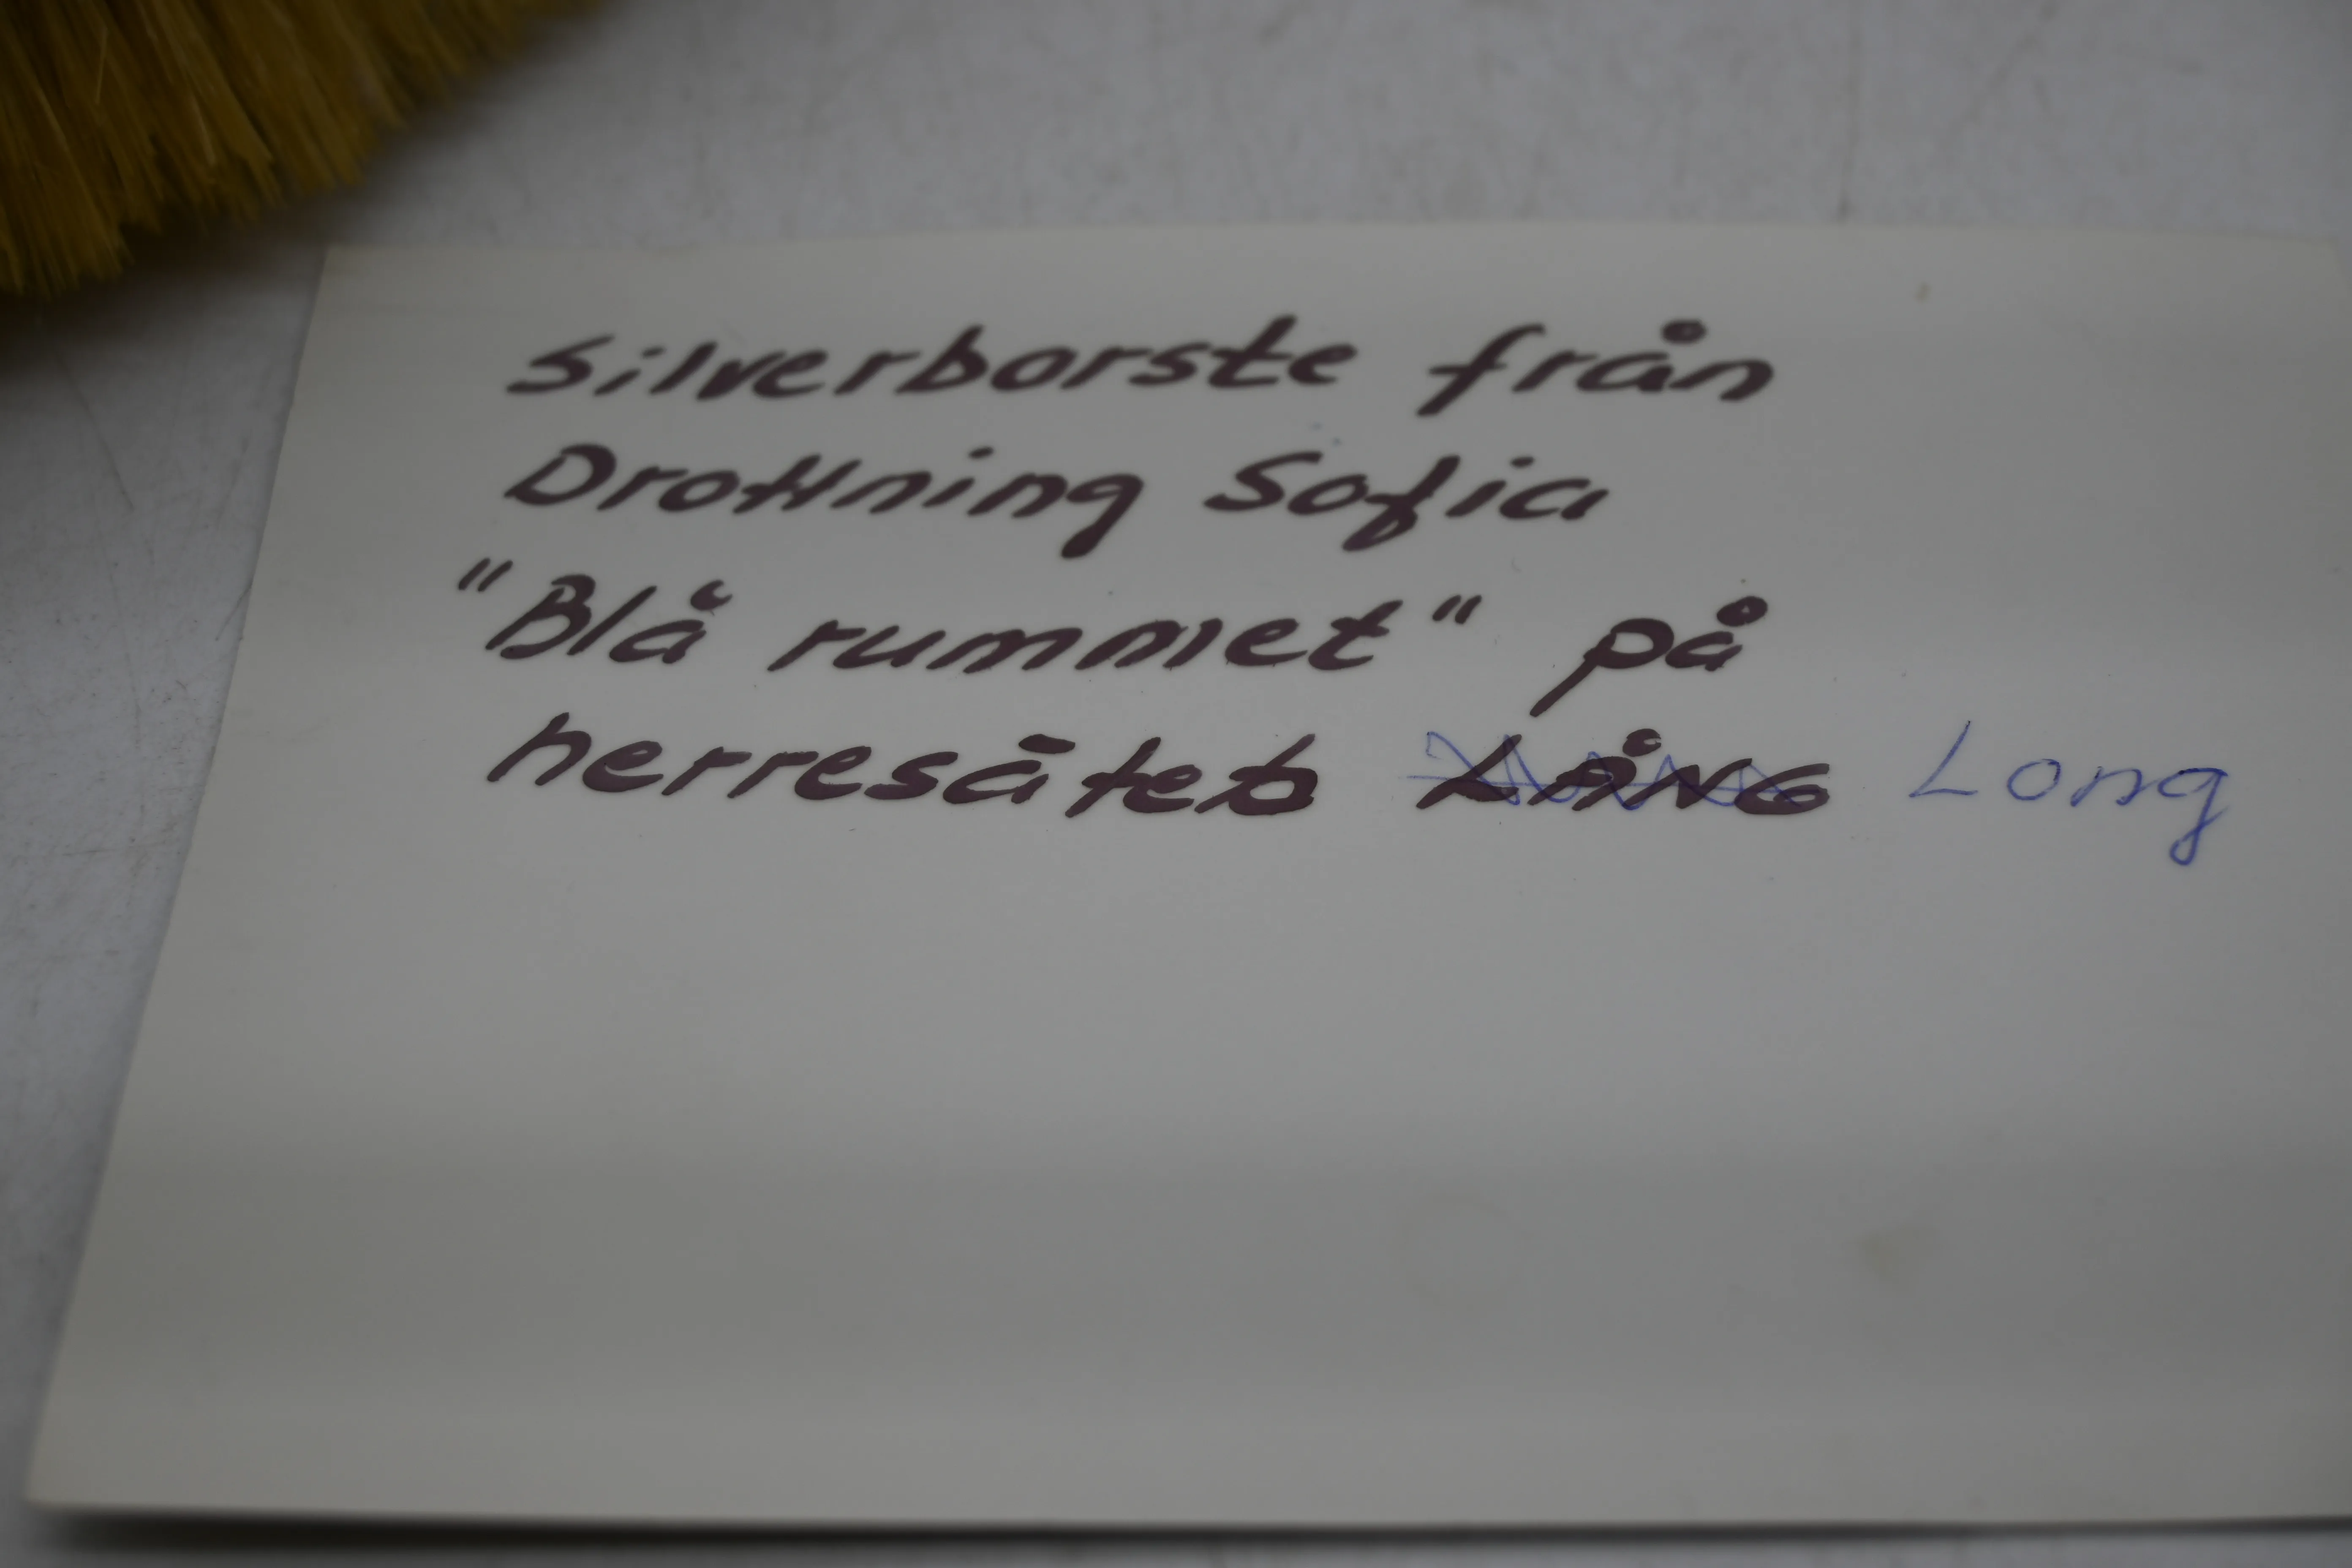 Silverborste från
Drottning Sofia
"Blå rummet" på
herresätet LÅNG Long